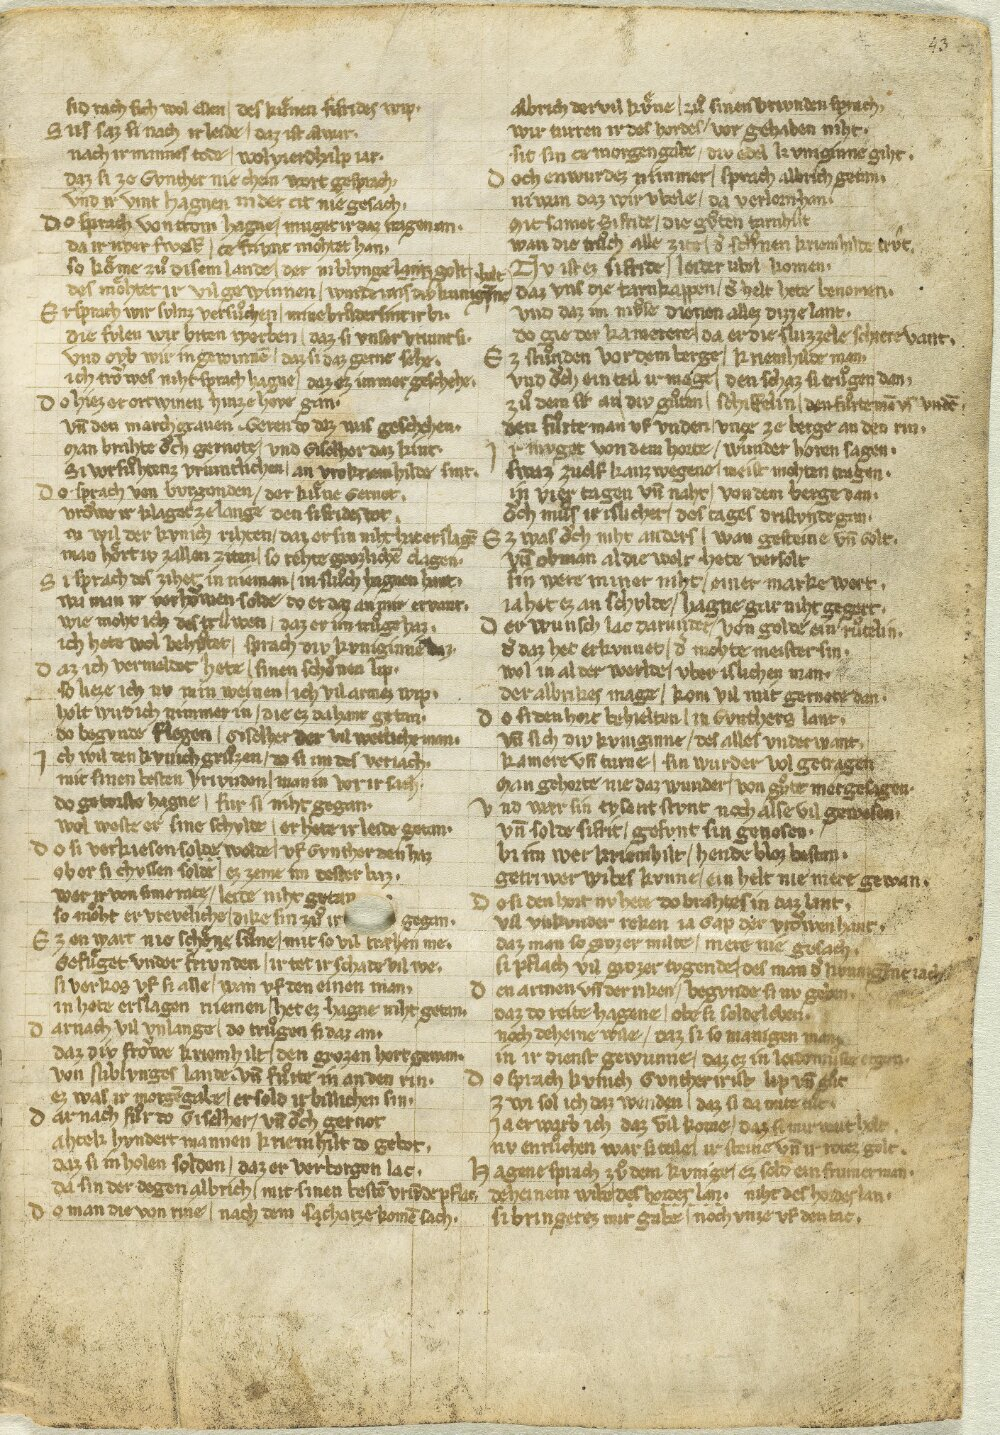 43
sid rach sich wol ellen / des kuͤnen sifrides wip.
Sus saz si nach ir leide / daz ist alwar.
nach ir mannes tode / wol vierdhalp iar.
daz si ze Gvnther nie chein wort gesprach.
vnd ir vint hagnen in der cit nie gesach.
Do sprach von troni hagne / muget ir daz tragen an.
da ir uwer swester / ce frivnt mohtet han.
so kome zuͦ disem lande / der niblvnge golt.
des mohtet ir vil gewinnen / wurde uns div kuniginne holt
Er sprach wir sulnz versuͦchen / mine bruder sint ir bi.
die sulen wir biten werben / daz si unser vriunt si.
vnd ob wir ir gewinnē / daz si daz gerne sehe.
ich trowes niht sprach hagne / daz ez immer geschehe.
Do hiez er ortwinen hin ze hove gan.
vn̄ den marchgraven Geren do daz was geschehen.
man brahte oͮch gernote / vnd Giselher daz kint.
si versuͦhtenz vriuntlichen / an vrō kriemhilde sint.
Do sprach von burgonden / der kuͤne Gernot.
vrowe ir klaget ze lange den sifrides tot.
nu wil der kvnich rihten / daz er sin niht hat erslagē
man hort iv zallen ziten / so rehte grozlichē clagen.
Si sprach des zihet in nieman / in sluͦch hagnen hant.
wa man in verhowen solde do er daz an mir ervant.
wie moht ich des trůwen / daz er im trůge haz.
ich hete wol behuͦtet / sprach div kvniginne daz.
Daz ich vermeldet hete / sinen schoͤnen lip.
so lieze ich nv min weinen / ich vil armez wip.
holt wird ich nimmer in / die ez da hant getan.
do begvnde flegen / Giselher der vil wetliche man.
Ich wil den kvnich gruͦzen / do si im des veriach.
mit sinen besten vriunden / man in vor ir sach.
do getorste hagne / fur si niht gegan.
wol weste er sine schvlde / er hete ir leide getan.
Do si verkiesen solde wolde / vf Gvnther den haz
ob er si chvssen solde / ez zeme im dester baz.
wer ir von sime rate / leide niht getan
so moht er vreveliche / dike sin zuͦ ir gegan.
Ez en wart nie schoͤne suͦne / mit so vil trehen me.
gefuͦget vnder frivnden / ir tet ir schade vil we.
si verkos vf si alle / wan vf den einen man.
in hete erslagen niemen / het ez hagne niht getan.
Darnach vil vnlange / do truͦgen si daz an.
daz div froͮwe kriemhilt / den grozen hort gewan.
von niblvnges lande vn̄ fuͦrte in an den rin.
ez was ir morgēgabe / er sold ir billichen sin.
Dar nach fuͦr do Giselher / vn̄ oͮch gernot
ahtzk hvndert mannen kriemhilt do gebot.
daz si in holen solden / daz er verborgen lac.
da sin der degen albrich / mit sinen bestē vriv̄den pflac
Do man die von rine / nach dem schatze komē sach.
albrich der vil kuͤne / zuͦ sinen vriunden sprach.
wir turren ir des hordes / vor gehaben niht.
sit sin ce morgengabe / div edel kvniginne giht.
Doch en wurdez nimmer / sprach albrich getan.
niwan daz wir vbele / da verlorn han.
mit samet Sifride / die guͦten tarnhut
wan die truͦch alle zite / d̓ schoͤnen kriemhilde trv̂t.
Nv ist ez sifride / leider ubel komen.
daz vns die tarnkappen / d̓ helt hete benomen.
vnd daz im muͦse dienen allez dizze lant.
do gie der kamerere / da er die sluzzele schiere vant.
Ez stuͦnden vor dem berge / kriemhilde man
vnd oͮch ein teil ir mage / den schaz si truͦgen dan.
zuͦ dem se an div guͦten / schiffelin / den fuͦrte mā vf vnden
den fuͦrte man vf vnden / vnze ze berge an den rin.
Ir muget von dem horte / wunder horen sagen.
swaz zwelf kanzwegene / meist mohten tragen.
in vier tagen vn̄ naht / von dem berge dan.
oͮch muͦs ir islicher / des tages dristvnde gan.
Ez was oͮch niht anders / wan gesteine vn̄ golt.
vn̄ ob man al die welt hete versolt
sin were minner niht / einer marke wert.
ia het ez an schvlde / hagne gar niht gegert.
Der wunsch lac darunder / von golde ein ruͤtelin.
d̓ daz het erkunnet / d̓ mohte meister sin.
wol in al der werlde / vber islichen man.
der albriches mage / kom vil mit gernote dan.
Do si den hort behielten / in Gvnthers lant.
vn̄ sich div kvniginne / des alles vnderwant.
kamere vn̄ turne / sin wurden vol getragen
man gehorte nie daz wunder / von guͦte mer gesagen.
Vnd wer sin tvsent stvnt noch alse vil gewesen.
vn̄ solde sifrit / gesvnt sin genesen.
bi im wer kriemhilt / hende bloz bestan.
getriwer wibes kvnne / ein helt nie mere gewan.
Do si den hort nv hete do brahtes in daz lant.
vil vnkvnder reken ia gap der vrowen hant.
daz man so grozer milte / mere nie gesach.
si pflach vil grozer tvgende / des man d̓ kvniginne iach.
Den armen vn̄ der riken / begvnde si nv geben.
daz do reite hagene / obe si solde leben.
noch deheine wile / daz si so manigen man.
in ir dienst gewunne / daz ez in leide muͤste ergan.
Do sprach kvnich Gvnther ir ist lip vn̄ guͦt
zwi sol ich daz wenden / daz si da mite tuͦt.
Ja erwarb ich daz vil kovme / daz si mir wart holt.
nv enruͦchen war si teile / ir steine vn̄ ir rotez golt.
Hagene sprach zuͦ dem kvnige / ez sold ein frumer man.
deheinem wibe des hordes lan. niht des hordes lan.
si bringet ez mit gabe / noch vnze vf den tac.